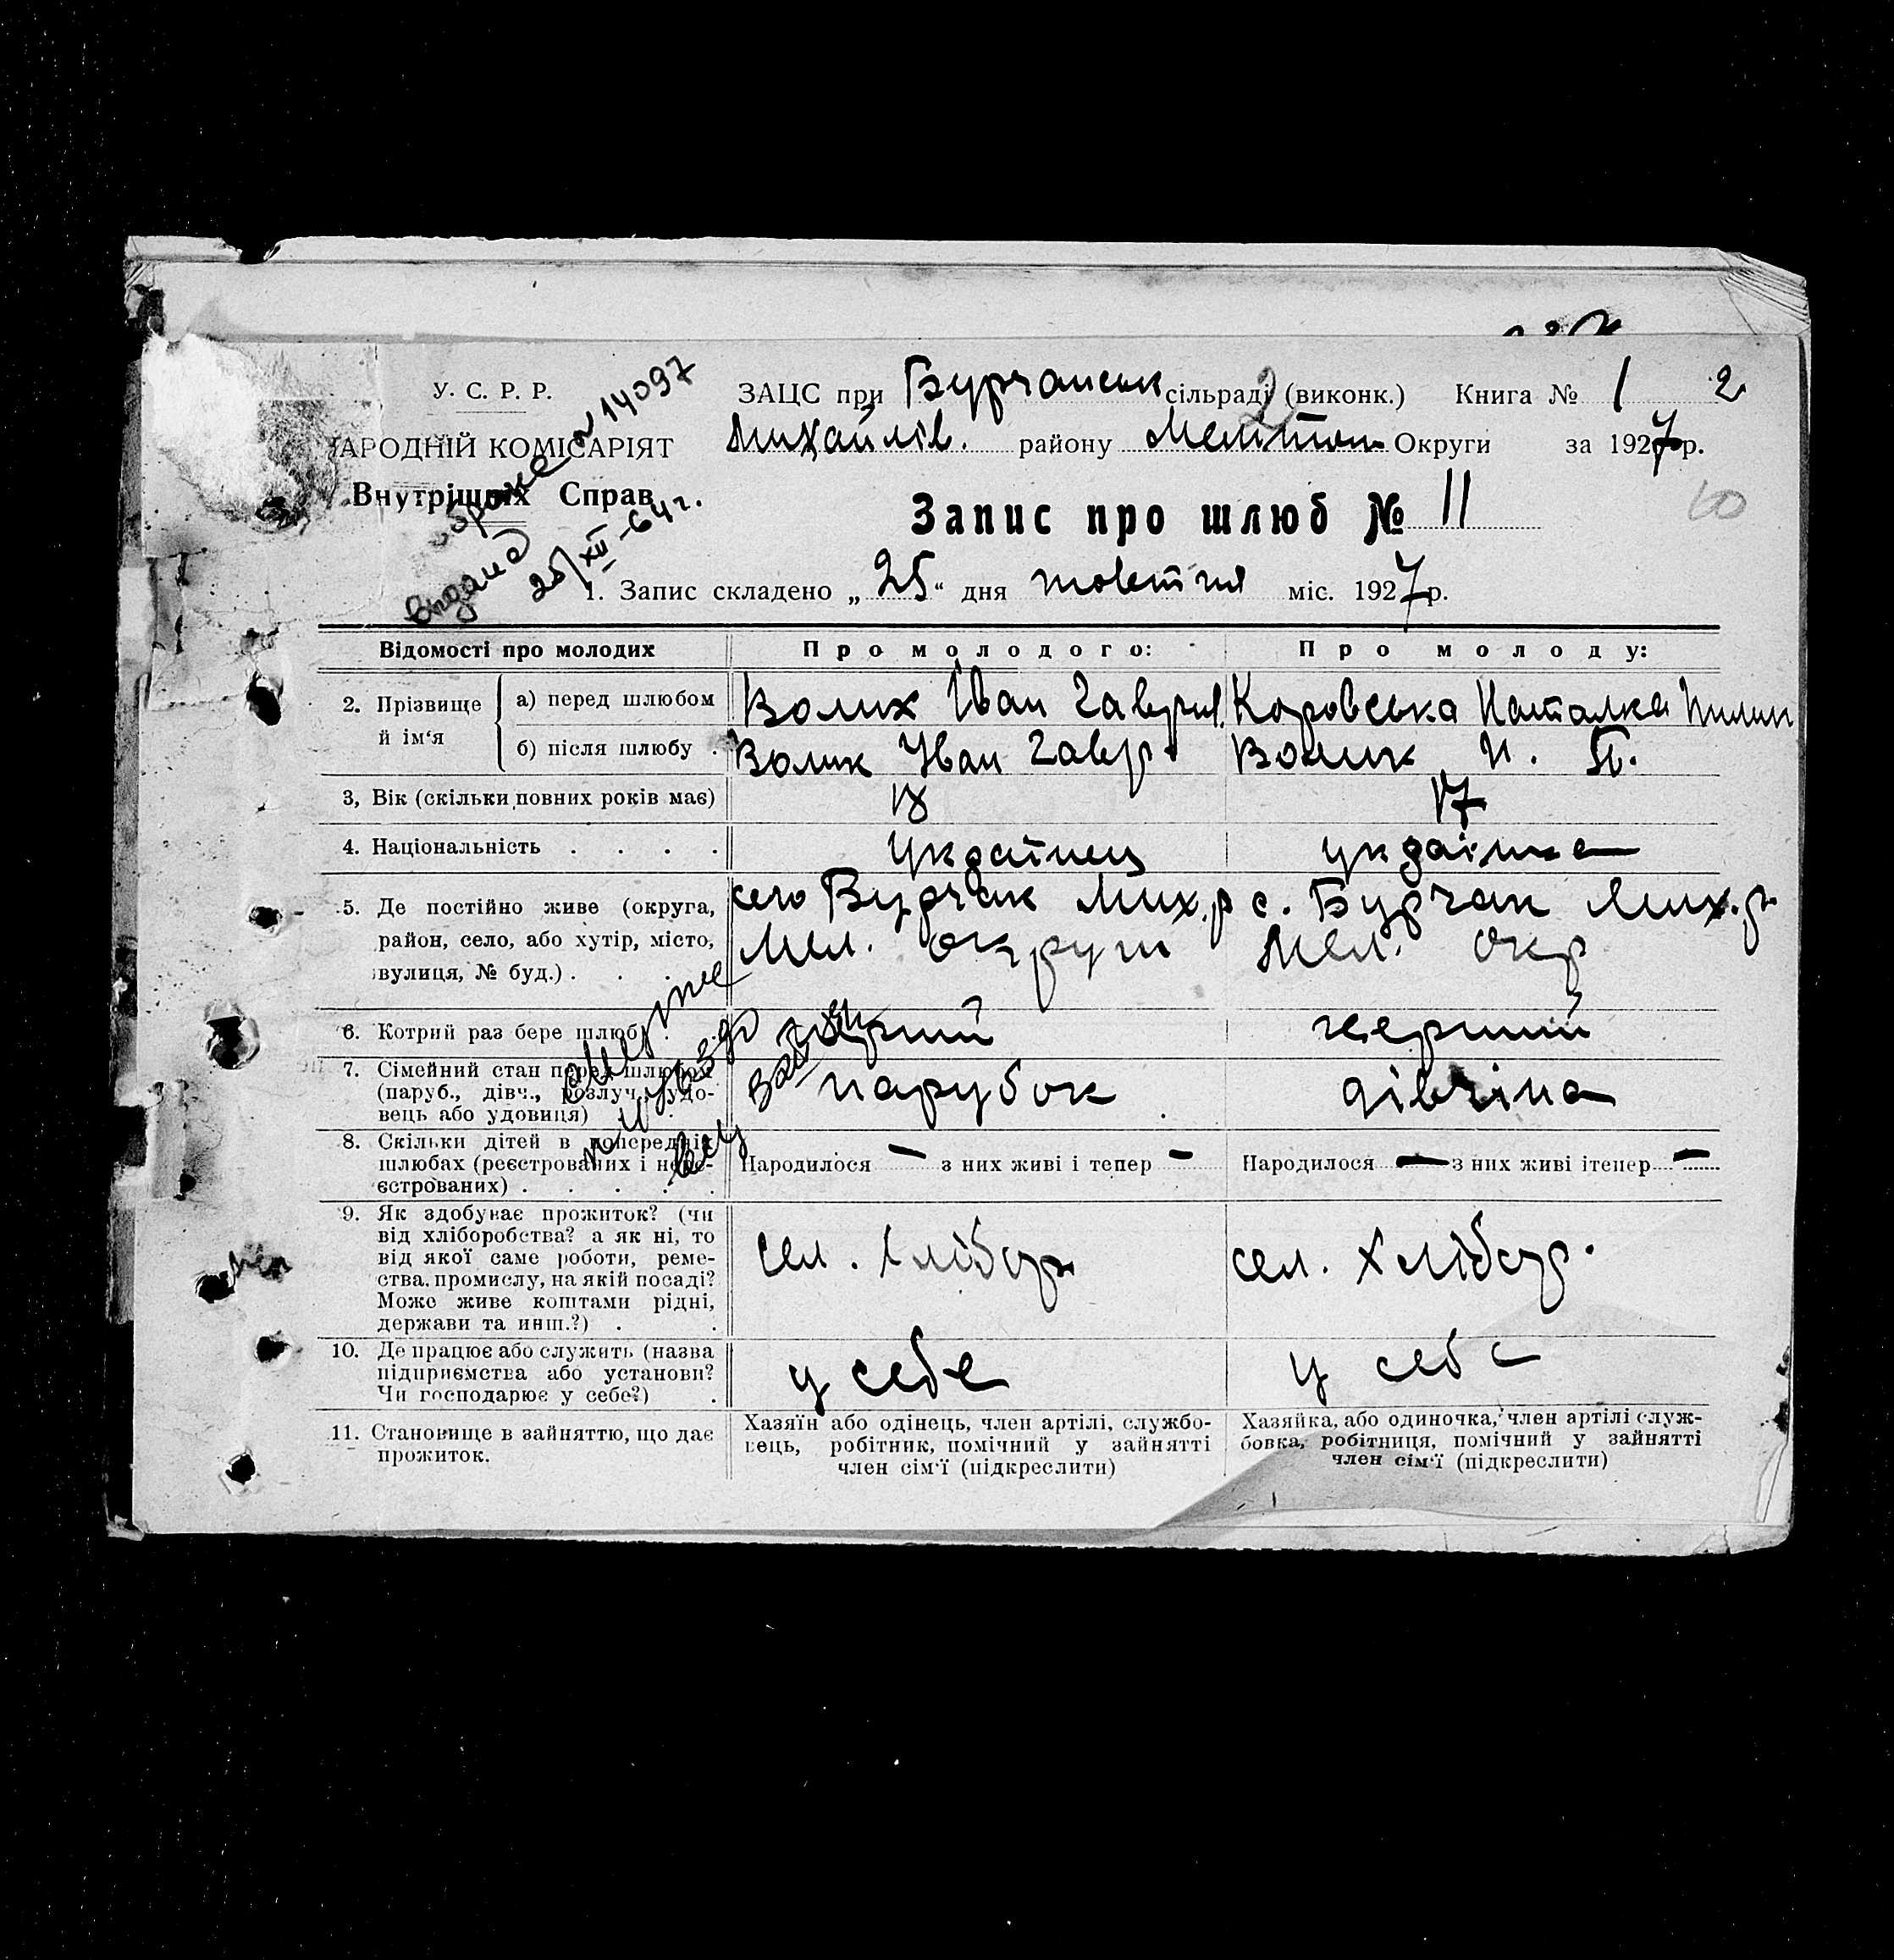 У. С. Р. Р.
НАРОДНІЙ КОМІСАРІЯТ
Внутрішніх Справ
№ 14097
видано
25/XII-64 г.
ЗАЦС при Бурчанськ сільраді (виконк.) Книга № 1 2
Михайлів. району Мелітоп Округи за 1927 р.
Запис про шлюб № 11
10
1. Запис складено „25“ дня жовтня міс. 1927 р.
Відомості про молодих Про молодого: Про молоду:
2. Прізвище й ім‘я
а) перед шлюбом Волик Іван Гаврил. Коровська Наталка Пилип
б) після шлюбу Волик Іван Гавр. Волик Н. П.
3, Вік (скільки повних років має) 18 17
4. Національність українец українка
5. Де постійно живе (округа, село Бурчак Мих. р с. Бурчак Мих. р.
район, село, або хутір, місто, Мел. округи Мел. окр
вулиця, № буд.)
6. Котрий раз бере шлюб перший перший
7. Сімейний стан перед шлюбом
(паруб., дівч., розлуч., удо- парубок дівчина
вець або удовиця)
8. Скільки дітей в попередніх
шлюбах (реєстрованих і нере- Народилося — з них живі і тепер — Народилося — з них живі ітепер —
єстрованих)
9. Як здобуває прожиток? (чи
від хліборобства? а як ні, то
від якої саме роботи, реме- сел. хлібор сел. хлібор.
ства, промислу, на якій посаді?
Може живе коштами рідні,
держави та инш.?)
10. Де працює або служить (назва
підприємства або установи? у себе у себе
Чи господарює у себе?)
11. Становище в зайняттю, що дає
прожиток.
Хазяїн або одінець, член артілі, службо-
вець, робітник, помічний у зайнятті
член сім‘ї (підкреслити)
Хазяйка, або одиночка, член артілі служ-
бовка, робітниця, помічний у зайнятті
член сім‘ї (підкреслити)